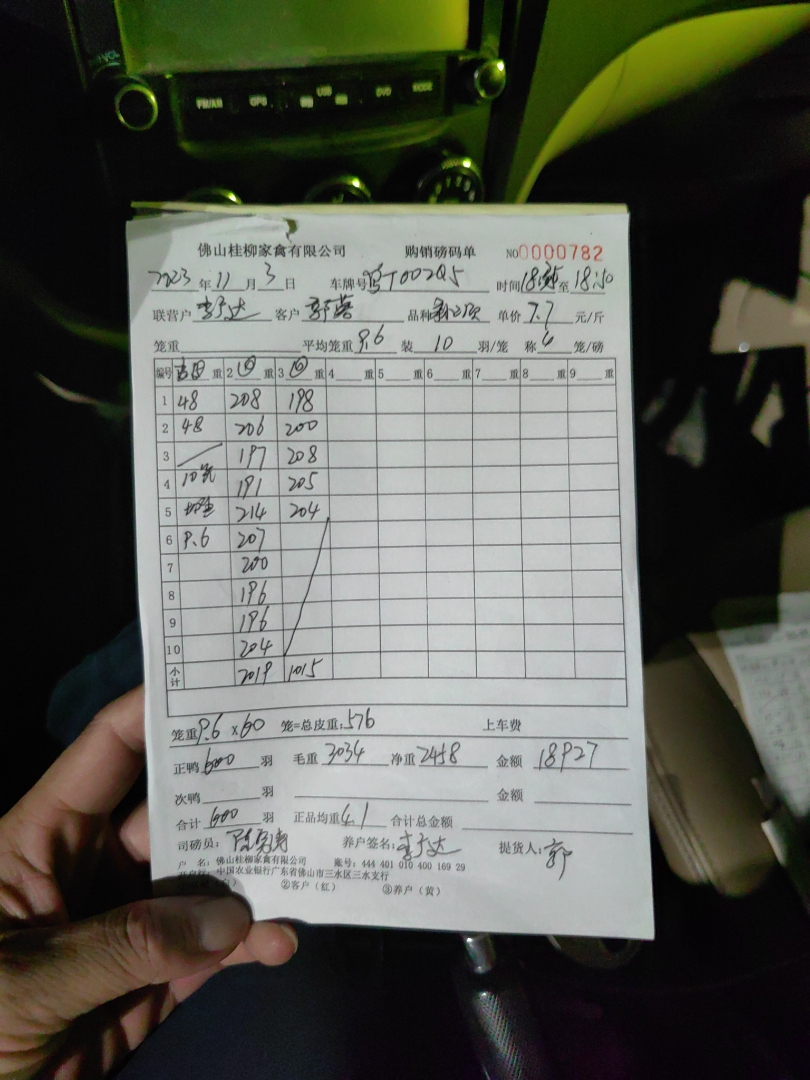 VOL
FM/AM GPS USB DVD MODE
佛山桂柳家禽有限公司 购销磅码单 NO0000782
2023 年 11 月 3 日 车牌号 T00295 时间 18: 至 18:50
联营户 客户 品种 单价 7.7 元/斤
笼重 平均笼重 9.6 装 10 羽/笼 称 6 笼/磅
编号 重 2 回 重 3 回 重 4 重 5 重 6 重 7 重 8 重 9 重
1 48 208 198
2 48 206 200
3 197 208
4 10笼 191 205
5 214 204
6 9.6 207
7 200
8 196
9 196
10 204
小计 2019 1015
笼重 9.6 ×60 笼=总皮重: 576 上车费
正鸭 600 羽 毛重 3034 净重 2458 金额 18927
次鸭 羽 金额
合计 600 羽 正品均重 4.1 合计总金额
司磅员: 养户签名: 提货人: 郭
户 名: 佛山桂柳家禽有限公司 账号: 444 401 010 400 169 29
中国农业银行广东省佛山市三水区三水支行
②客户(红) ③养户(黄)